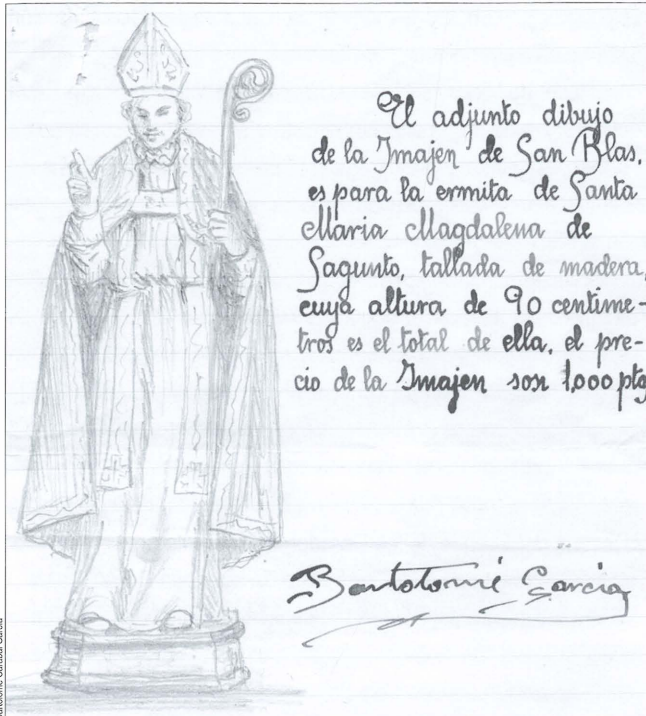 El adjunto dibujo
de la Imajen de San Blas,
es para la ermita de Santa
Maria Magdalena de
Sagunto, tallada de madera,
cuya altura de 90 centime-
tros es el total de ella, el pre-
cio de la Imajen son 1,000 ptas
Bartolomé Garcia